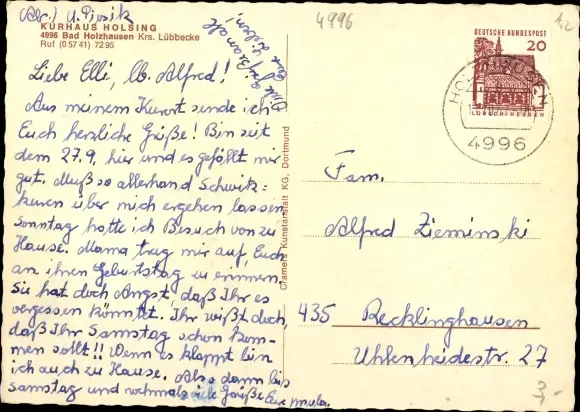 Abs.) U.
KURHAUS HOLSING
4996 Bad Holzhausen Krs. Lübbecke
Ruf (0 57 41) 72 95
Liebe Elli, lb. Alfred!
Aus meinem Kurort sende ich
Euch herzliche Grüße! Bin seit
dem 27.9. hier und es gefällt mir
gut. Muß so allerhand Schwitz=
kuren über mich ergehen lassen
Sonntag hatte ich Besuch von zu
Hause. Mama trug mir auf, Euch
an ihren Geburtstag zu erinnern.
Sie hat doch Angst, daß Ihr es
vergessen könntet. Ihr wißt doch,
daß Ihr Samstag schon kom-
men sollt!! Wenn es klappt bin
ich auch zu Hause. Also dann bis
Samstag und nochmals viele Grüße Eure
Viele Grüße
Cramers Kunstanstalt KG, Dortmund
4996
DEUTSCHE BUNDESPOST
20
LORSCH/HESSEN
HOLZHAUSEN
4996
Fam.
Alfred Zieminski
435 Recklinghausen
Uhlenheidestr. 27